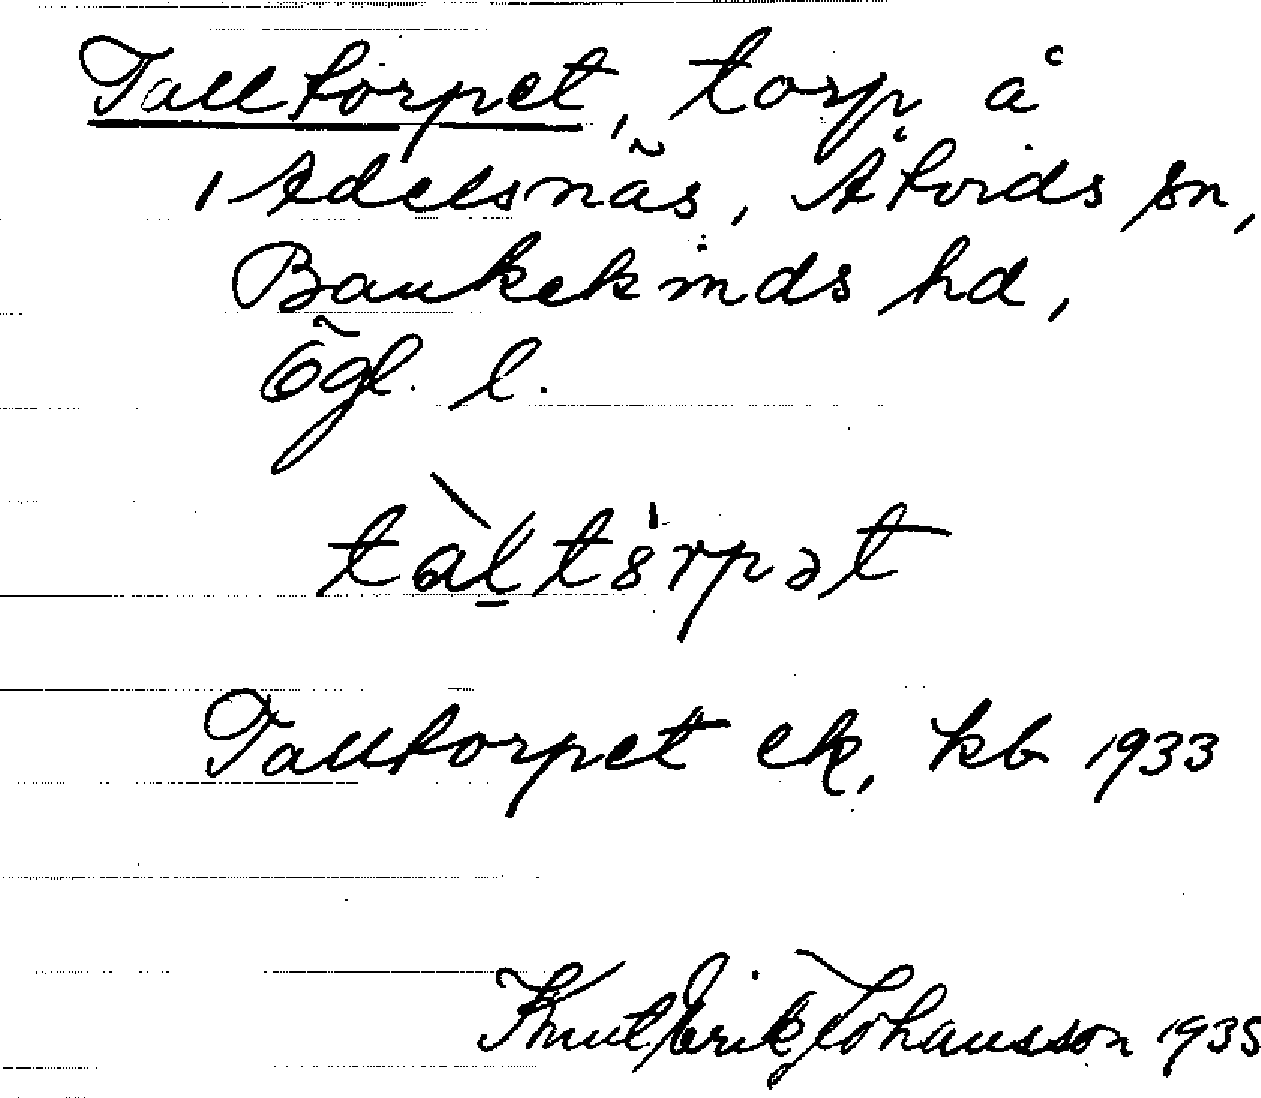 Talltorpet, torp å
Adelsnäs, Åtvids sn,
Bankekinds hd,
Ögl. l.
tàltŏ́rpət
Talltorpet ek, kb 1933
Knut Erik Johansson 1935